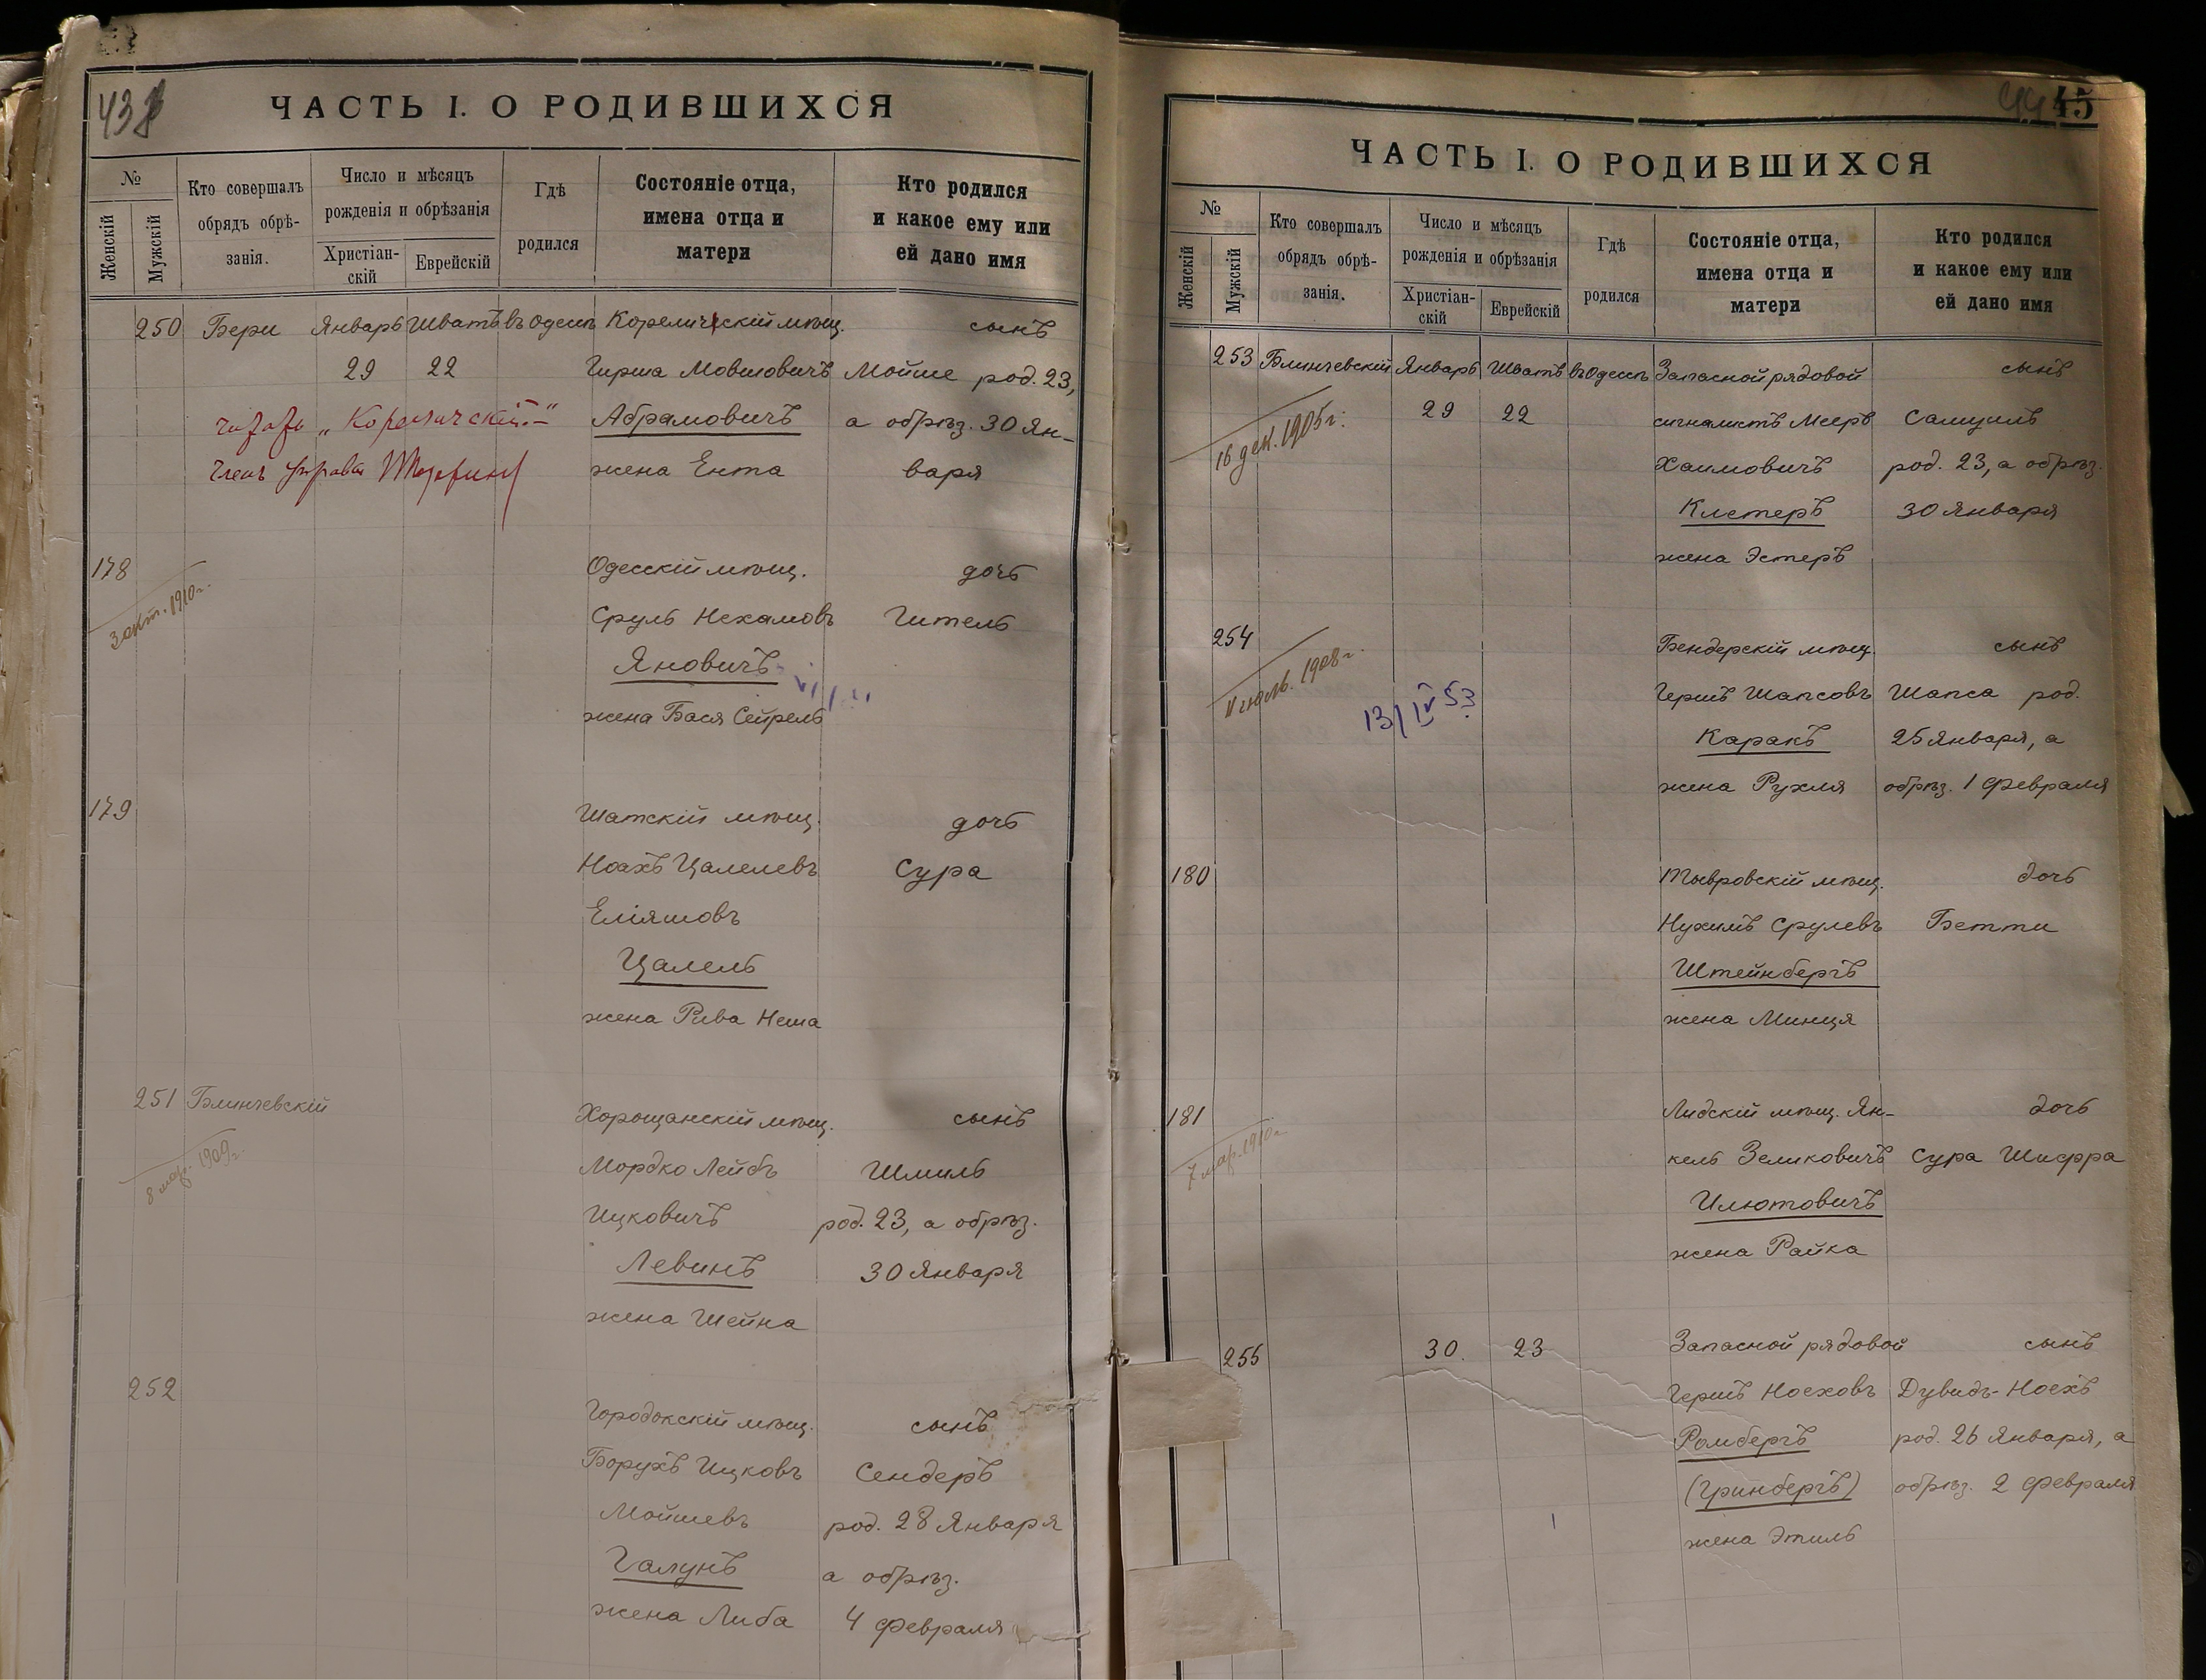 438
ЧАСТЬ I. О РОДИВШИХСЯ
№
Женскій
Мужскій
Кто совершалъ
обрядъ обрѣ-
занія.
Число и мѣсяцъ
рожденія и обрѣзанія
Христіан-
скій
Еврейскій
Гдѣ
родился
Состояніе отца,
имена отца и
матери
Кто родился
и какое ему или
ей дано имя
250 Бери Январь Шватъ въ Одессѣ Корелическій мѣщ. сынъ
29 22 Гирша Мовшовичъ Мойше род. 23,
„Корелическій“ Абрамовичъ а обрѣз. 30 Ян-
Членъ Управы жена Ента варя
178 Одесскій мѣщ. дочь
3 окт. 1910 г. Сруль Нехамовъ Гитель
Яновичъ
жена Бася Сейрель
179 Шатскій мѣщ. дочь
Ноахъ Цалелевъ Сура
Еліяшовъ
Цалель
жена Рива Неша
251 Блинчевскій Хорощанскій мѣщ. сынъ
8 мар. 1909 г. Мордко Лейбъ Шмиль
Ицковичъ род. 23, а обрѣз.
Левинъ 30 Января
жена Шейна
252 Городокскій мѣщ. сынъ
Борухъ Ицковъ Сендеръ
Мойшевъ род. 28 Января
Галунъ а обрѣз.
жена Либа 4 Февраля
44 45
ЧАСТЬ I. О РОДИВШИХСЯ
№
Женскій
Мужскій
Кто совершалъ
обрядъ обрѣ-
занія.
Число и мѣсяцъ
рожденія и обрѣзанія
Христіан-
скій
Еврейскій
Гдѣ
родился
Состояніе отца,
имена отца и
матери
Кто родился
и какое ему или
ей дано имя
253 Блинчевскій Январь Шватъ въ Одессѣ Запасной рядовой сынъ
16 дек. 1905 г. 29 22 сигналистъ Мееръ Самуилъ
Хаимовичъ род. 23, а обрѣз.
Клетеръ 30 Января
жена Эстеръ
254 Бендерскій мѣщ. сынъ
11 іюль. 1908 г. 13/IV 53 Гершъ Шапсовъ Шапса род.
Каракъ 25 Января, а
жена Рухля обрѣз. 1 Февраля
180 Тывровскій мѣщ. дочь
Нухимъ Срулевъ Бетти
Штейнбергъ
жена Минця
181 Лидскій мѣщ. Ян- дочь
7 мар. 1910 г. кель Зеликовичъ Сура Шифра
Илютовичъ
жена Райка
255 30. 23 Запасной рядовой сынъ
Гершъ Ноеховъ Дувидъ-Ноехъ
Ромбергъ род. 26 Января, а
(Гринбергъ) обрѣз. 2 Февраля
жена Этиль